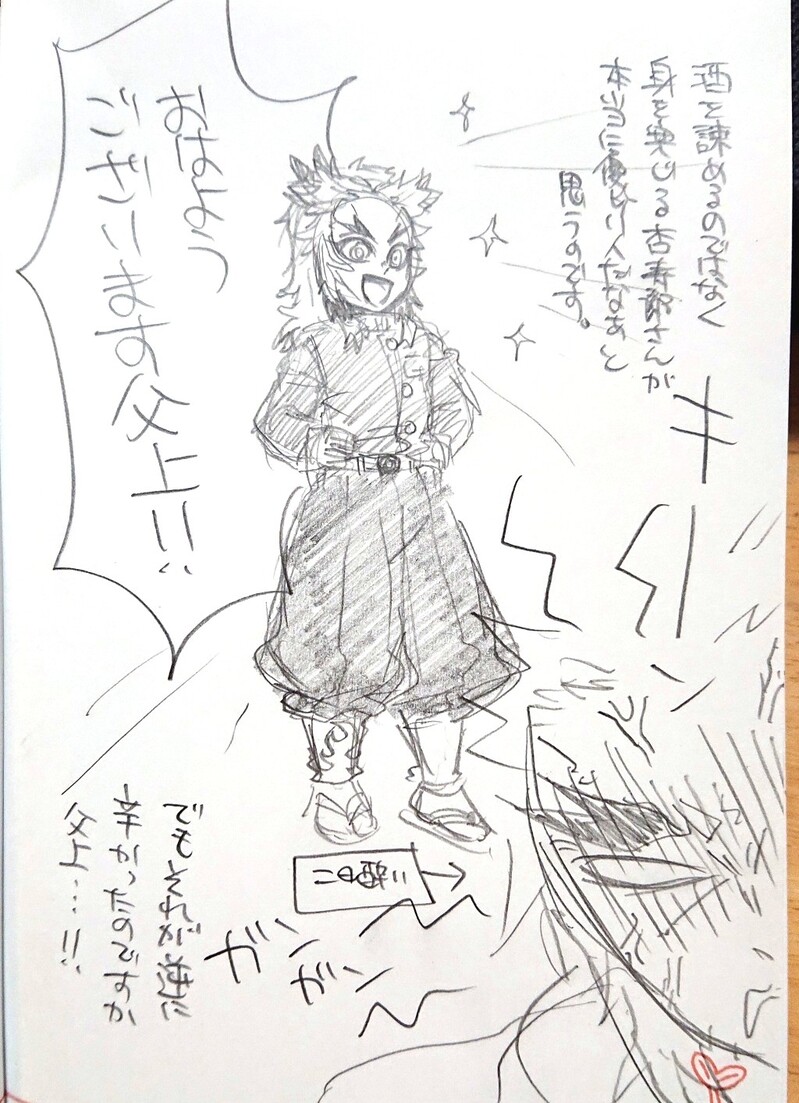 酒を諌めるのではなく
身を案じる杏寿郎さんが
本当に優しい人だなぁと
思うのです。
おはよう
ございます父上!!
キーン
ガンガン
二日酔い→
でもそれが逆に
辛かったのですか
父上…!!